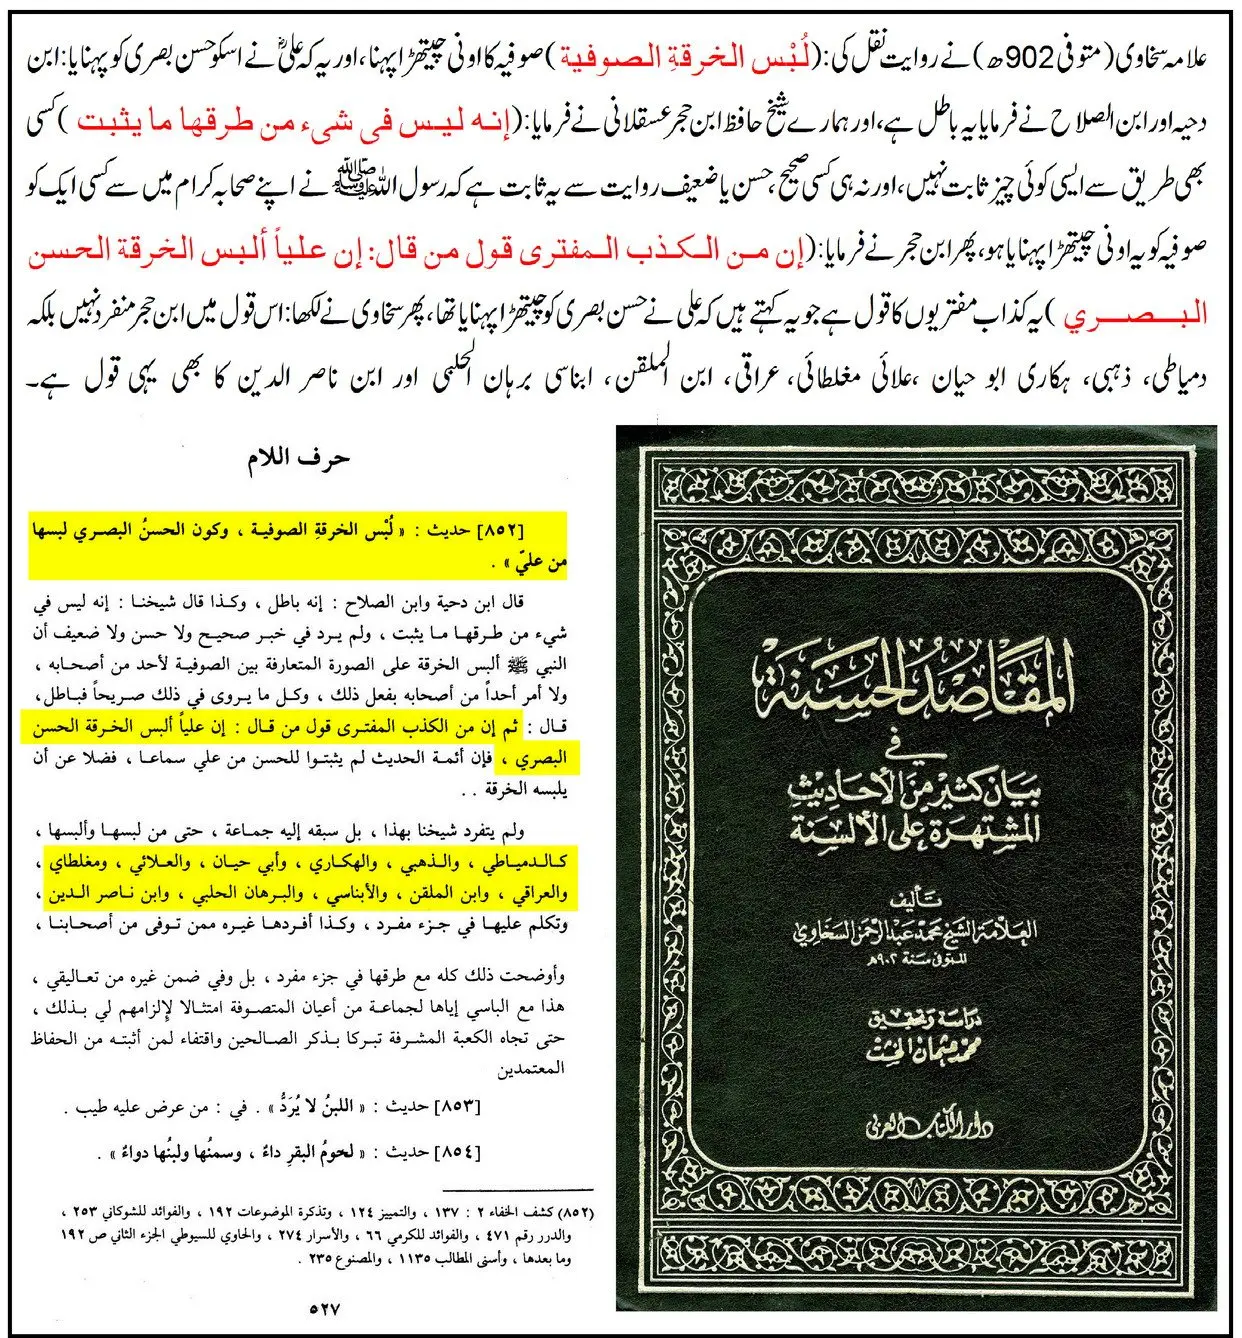 علامہ سخاوی (متوفی 902ھ) نے روایت نقل کی: (لُبْس الخرقةِ الصوفية) صوفیہ کا اونی چیتھڑا پہنا، اور یہ کہ علیؓ نے اسکو حسن بصری کو پہنایا: ابن
دحیہ اور ابن الصلاح نے فرمایا یہ باطل ہے، اور ہمارے شیخ حافظ ابن حجر عسقلانی نے فرمایا: (إنه ليس فى شىء من طرقها ما يثبت) کسی
بھی طریق سے ایسی کوئی چیز ثابت نہیں، اور نہ ہی کسی صحیح، حسن یا ضعیف روایت سے یہ ثابت ہے کہ رسول اللہ ﷺ نے اپنے صحابہ کرام میں سے کسی ایک کو
صوفیہ کو یہ اونی چیتھڑا پہنایا ہو، پھر ابن حجر نے فرمایا: (إن من الكذب المفترى قول من قال: إن علياً ألبس الخرقة الحسن
البصري) یہ کذاب مفتریوں کا قول ہے جو یہ کہتے ہیں کہ علی نے حسن بصری کو چیتھڑا پہنایا تھا، پھر سخاوی نے لکھا: اس قول میں ابن حجر منفرد نہیں بلکہ
دمیاطی، ذہبی، ہکاری ابو حیان ،علائی مغلطائی، عراقی، ابن الملقن، ابناسی برہان الحلبی اور ابن ناصر الدین کا بھی یہی قول ہے۔
حرف اللام
[٨٥٢] حديث : « لُبْس الخرقةِ الصوفية ، وكون الحسنُ البصري لبسها
من عليّ » .
قال ابن دحية وابن الصلاح : إنه باطل ، وكذا قال شيخنا : إنه ليس في
شيء من طرقها ما يثبت ، ولم يرد في خبر صحيح ولا حسن ولا ضعيف أن
النبي ﷺ ألبس الخرقة على الصورة المتعارفة بين الصوفية لأحد من أصحابه ،
ولا أمر أحداً من أصحابه بفعل ذلك ، وكل ما يروى في ذلك صريحاً فباطل ،
قال : ثم إن من الكذب المفترى قول من قال : إن علياً ألبس الخرقة الحسن
البصري ، فإن أئمة الحديث لم يثبتوا للحسن من علي سماعا ، فضلا عن أن
يلبسه الخرقة . .
ولم يتفرد شيخنا بهذا ، بل سبقه إليه جماعة ، حتى من لبسها وألبسها ،
كالدمياطي ، والذهبي ، والهكاري ، وأبي حيان ، والعلائي ، ومغلطاي ،
والعراقي ، وابن الملقن ، والأبناسي ، والبرهان الحلبي ، وابن ناصر الدين ،
وتكلم عليها في جزء مفرد ، وكذا أفردها غيره ممن توفى من أصحابنا ،
وأوضحت ذلك كله مع طرقها في جزء مفرد ، بل وفي ضمن غيره من تعاليقي ،
هذا مع الباسي إياها لجماعة من أعيان المتصوفة امتثالا لإلزامهم لي بذلك ،
حتى تجاه الكعبة المشرفة تبركا بذكر الصالحين واقتفاء لمن أثبته من الحفاظ
المعتمدين
[٨٥٣] حديث : « اللبنُ لا يُرَدُّ » . في : من عرض عليه طيب .
[٨٥٤] حديث : « لحومُ البقرِ داءٌ ، وسمنُها ولبنُها دواءٌ » .
(٨٥٢) كشف الخفاء ٢ : ١٣٧ ، والتمييز ١٢٤ ، وتذكرة الموضوعات ١٩٢ ، والفوائد للشوكاني ٢٥٣ ،
والدرر رقم ٤٧١ ، والفوائد للكرمي ٦٦ ، والأسرار ٢٧٤ ، والحاوي للسيوطي الجزء الثاني ص ١٩٢
وما بعدها ، وأسنى المطالب ١١٣٥ ، والمصنوع ٢٣٥ .
٥٢٧
المقاصد الحسنة
في
بيان كثير من الأحاديث
المشتهرة على الألسنة
تأليف
العلامة الشيخ محمد عبد الرحمن السخاوي
المتوفى سنة ٩٠٢هـ
دراسة وتحقيق
محمد عثمان الخشت
دار الكتاب العربي